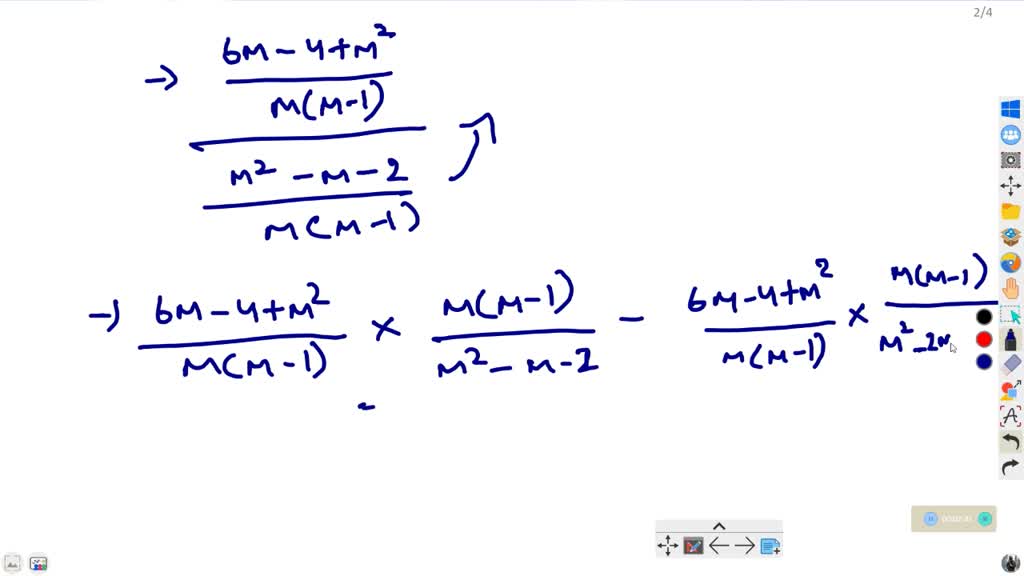 2/4
→ 6m - 4 + m²
m(m-1)
m² - m - 2
m(m-1)
→ 6m - 4 + m² / m(m-1) × m(m-1) / m² - m - 2 - 6m - 4 + m² / m(m-1) × m(m-1) / m² - 2m
=